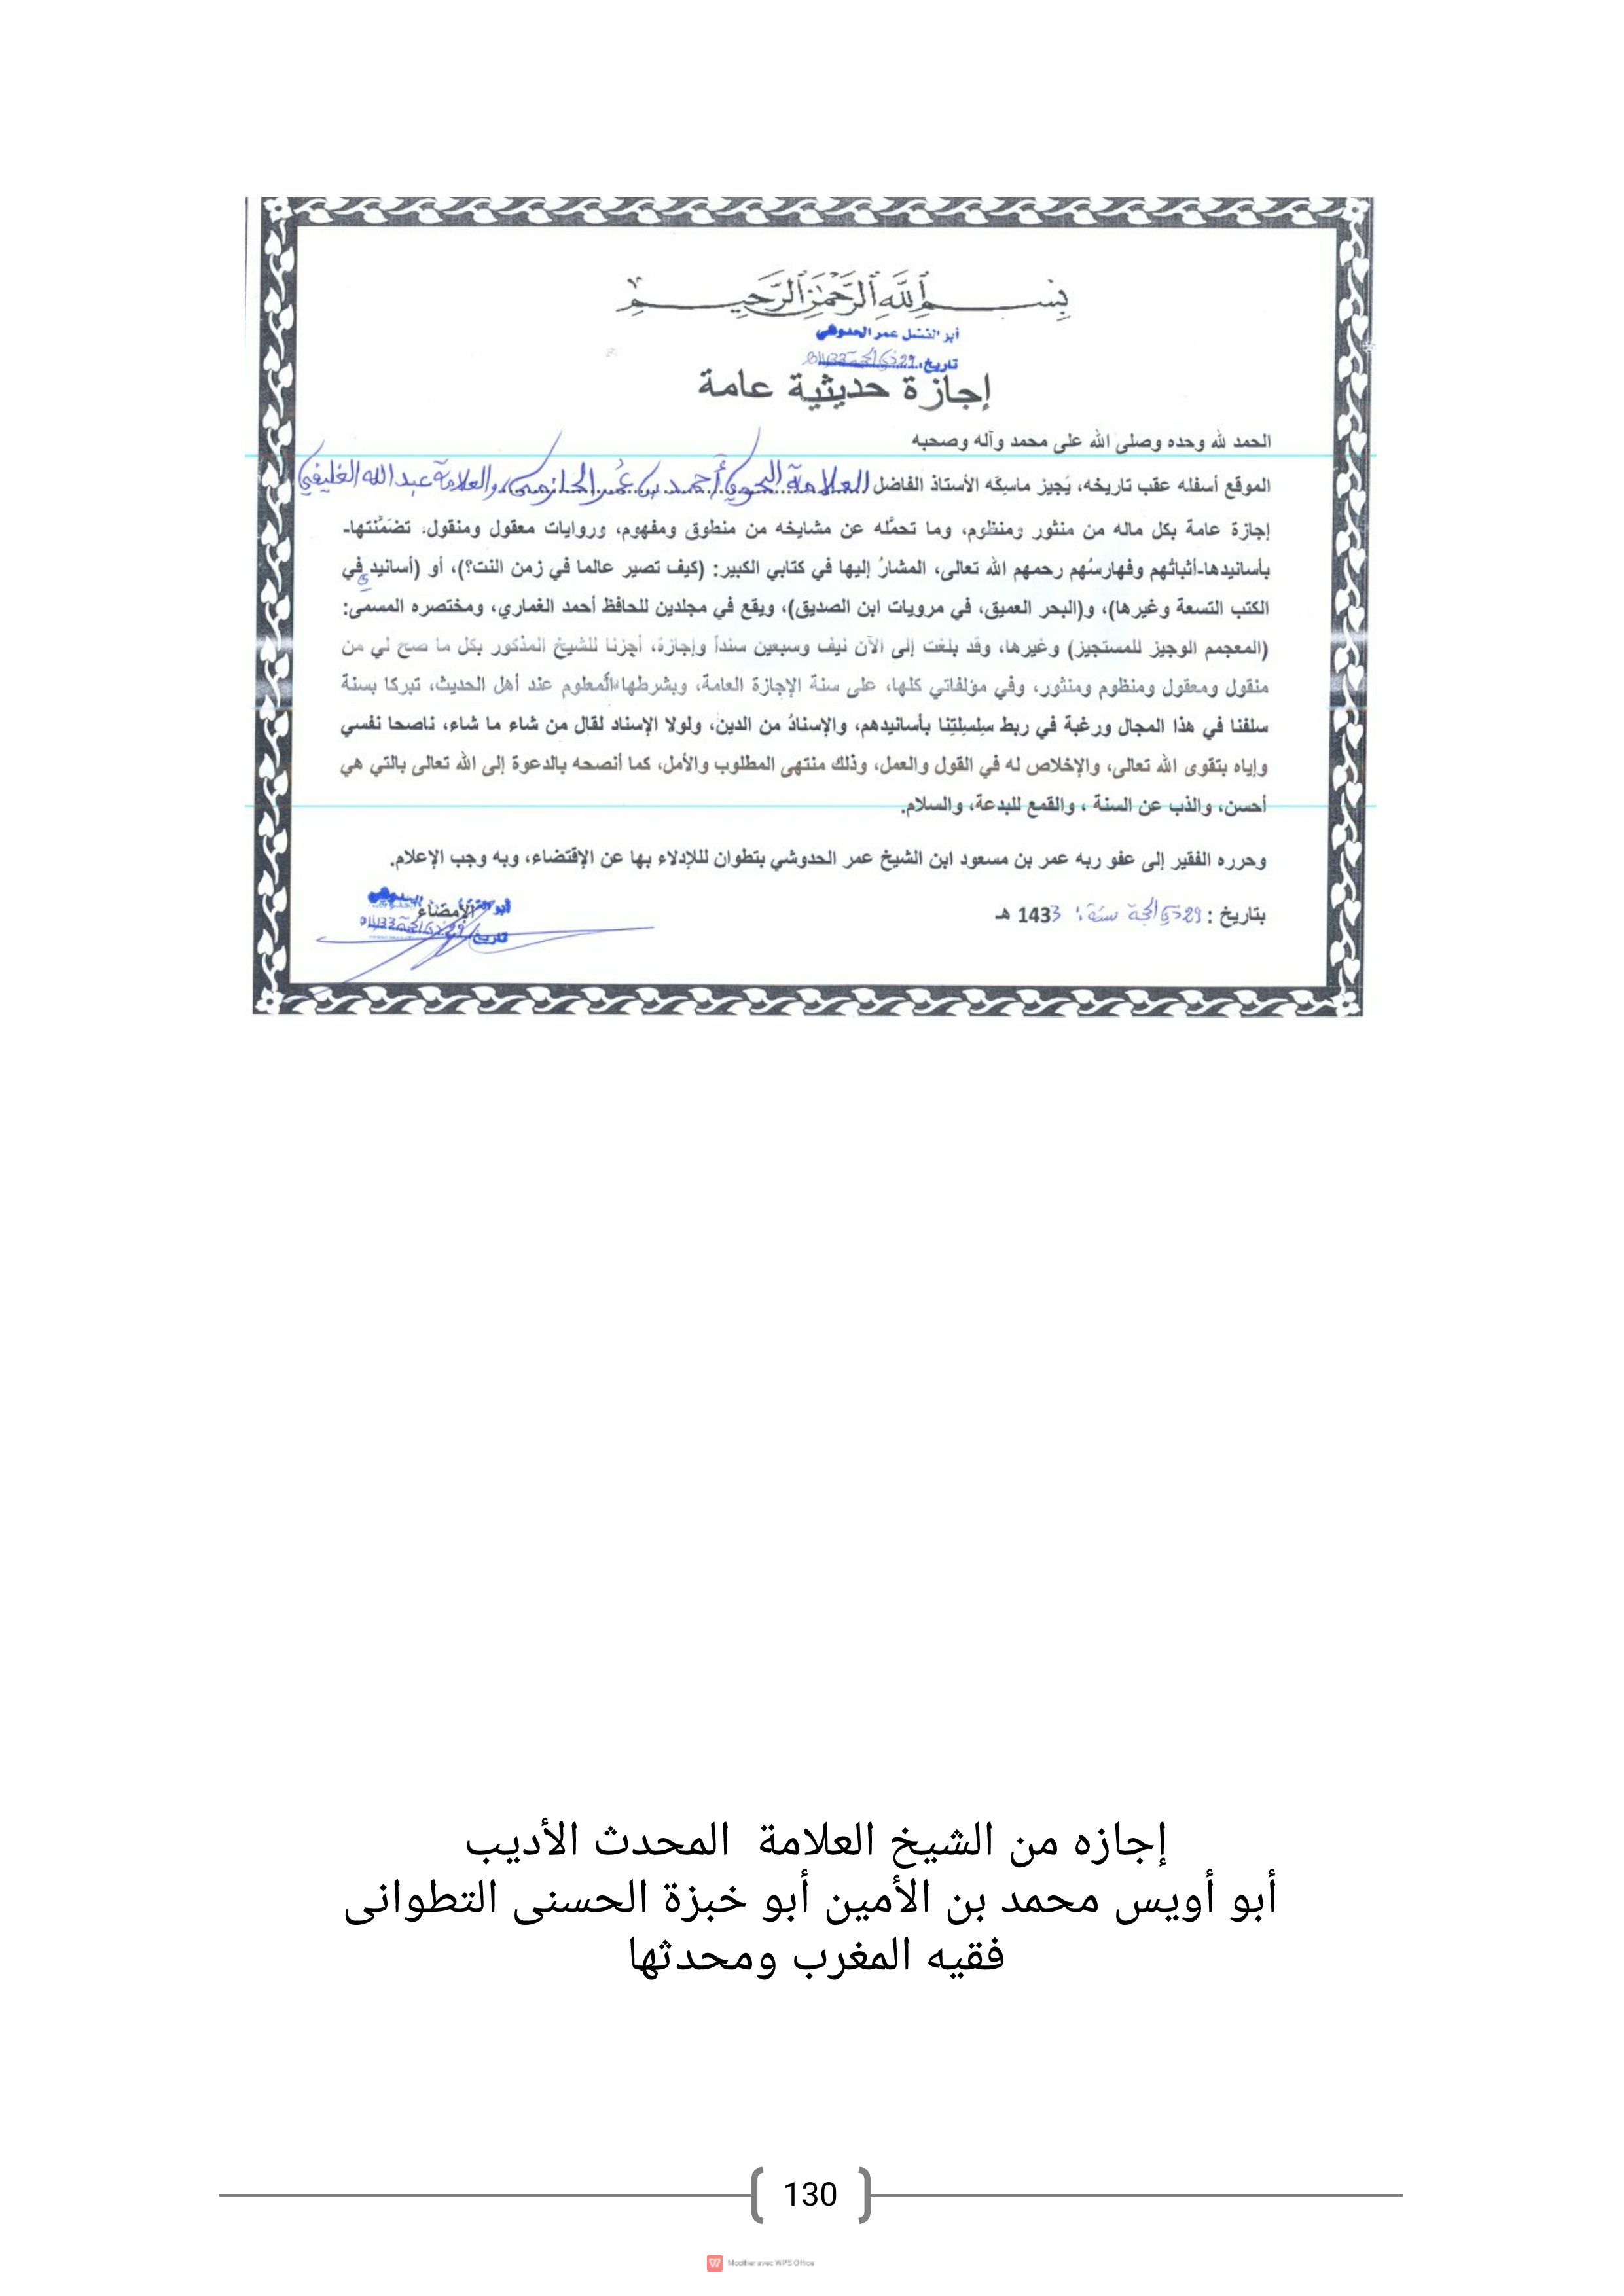 بسم الله الرحمن الرحيم
أبو الفضل عمر الحدوشي
تاريخ: 29 ذي الحجة 1433
إجازة حديثية عامة
الحمد لله وحده وصلى الله على محمد وآله وصحبه
الموقع أسفله عقب تاريخه، يُجيز ماسكه الأستاذ الفاضل العلامة النحوي أحمد بن عُمر الحازمي، والعلامة عبد الله الغليفي
إجازة عامة بكل ماله من منثور ومنظوم، وما تحمَّله عن مشايخه من منطوق ومفهوم، وروايات معقول ومنقول. تضمَّنتها-
بأسانيدها-أثباتُهم وفهارسُهم رحمهم الله تعالى، المشارُ إليها في كتابي الكبير: (كيف تصير عالما في زمن النت؟)، أو (أسانيدي في
الكتب التسعة وغيرها)، و(البحر العميق، في مرويات ابن الصديق)، ويقع في مجلدين للحافظ أحمد الغماري، ومختصره المسمى:
(المعجم الوجيز للمستجيز) وغيرها، وقد بلغت إلى الآن نيف وسبعين سنداً وإجازة، أجزنا للشيخ المذكور بكل ما صح لي من
منقول ومعقول ومنظوم ومنثور، وفي مؤلفاتي كلها، على سنة الإجازة العامة، وبشرطها المعلوم عند أهل الحديث، تبركا بسنة
سلفنا في هذا المجال ورغبة في ربط سِلسِلتِنا بأسانيدهم، والإسنادُ من الدين، ولولا الإسناد لقال من شاء ما شاء، ناصحا نفسي
وإياه بتقوى الله تعالى، والإخلاص له في القول والعمل، وذلك منتهى المطلوب والأمل، كما أنصحه بالدعوة إلى الله تعالى بالتي هي
أحسن، والذب عن السنة ، والقمع للبدعة، والسلام.
وحرره الفقير إلى عفو ربه عمر بن مسعود ابن الشيخ عمر الحدوشي بتطوان للإدلاء بها عن الإقتضاء، وبه وجب الإعلام.
بتاريخ : 29 ذي الحجة سنة: 1433 هـ
الإمضاء
تاريخ: 29 ذي الحجة 1433
إجازه من الشيخ العلامة المحدث الأديب
أبو أويس محمد بن الأمين أبو خبزة الحسنى التطوانى
فقيه المغرب ومحدثها
130
Modifier avec WPS Office